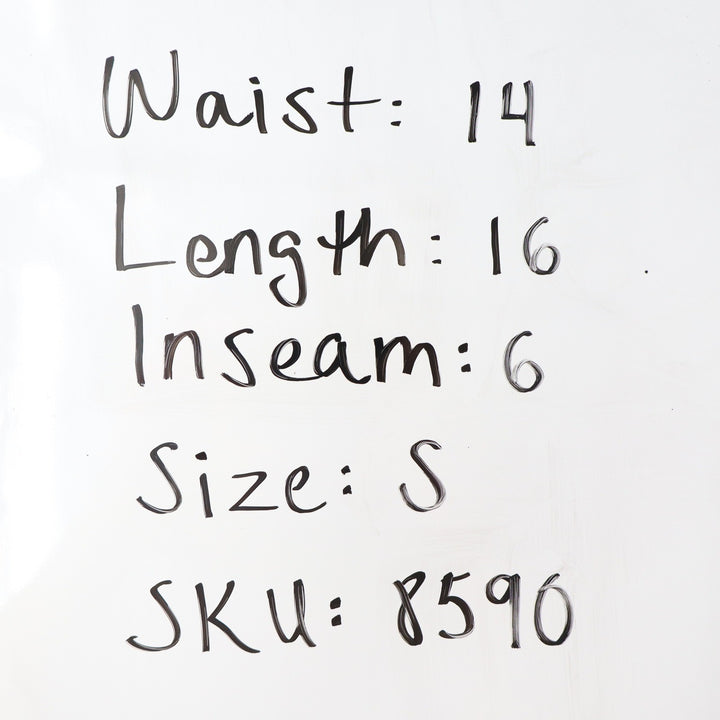 Waist: 14
Length: 16
Inseam: 6
Size: S
SKU: 8590